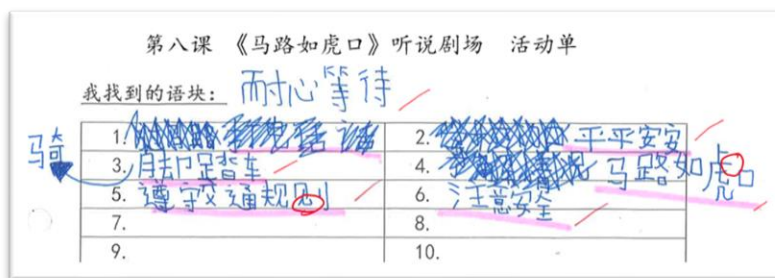 第八课 《马路如虎口》听说剧场 活动单
我找到的语块： 耐心等待
1.
2. 平平安安
骑
3. 脚踏车
4. 马路如虎口
5. 遵守交通规则
6. 注意安全
7.
8.
9.
10.